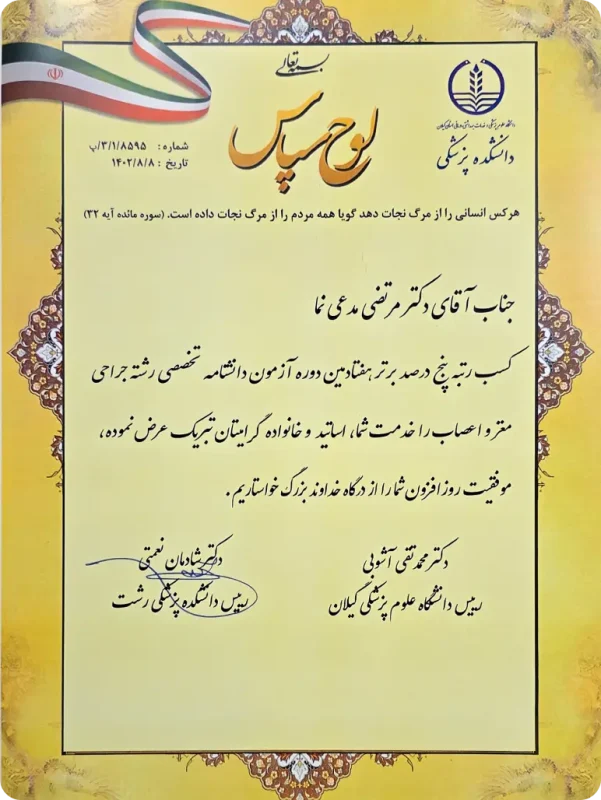 بسمه تعالی
لوح سپاس
دانشگاه علوم پزشکی و خدمات بهداشتی درمانی گیلان
دانشکده پزشکی
شماره : ۳/۱/۸۵۹۵/پ
تاریخ : ۱۴۰۲/۸/۸
هرکس انسانی را از مرگ نجات دهد گویا همه مردم را از مرگ نجات داده است. (سوره مائده آیه ۳۲)
جناب آقای دکتر مرتضی مدعی نما
کسب رتبه پنج درصد برتر هفتادمین دوره آزمون دانشنامه تخصصی رشته جراحی
مغز و اعصاب را خدمت شما، اساتید و خانواده گرامیتان تبریک عرض نموده،
موفقیت روز افزون شما را از درگاه خداوند بزرگ خواستاریم.
دکتر محمد تقی آشوبی
رییس دانشگاه علوم پزشکی گیلان
دکتر شادمان نعمتی
رییس دانشکده پزشکی رشت